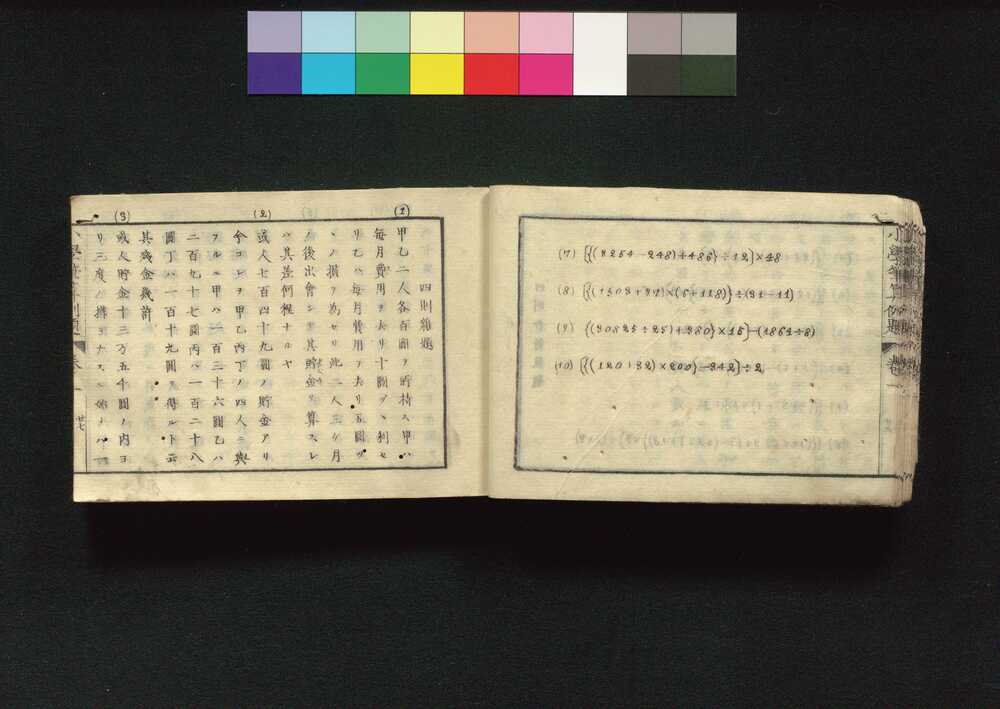 小學筆算例題 卷一
(7) [{(8254-248)+486}÷12]×48
(8) [{(1503+97)×(6+118)}÷(31-11)
(9) {(30825÷25)+380}×15}-(1864÷8)
(10) [{(120+32)×200}-342]÷2
四則雜題
(1)
甲乙二人各百圓ヲ所持ス甲ハ
毎月費用ヲ去リ十圓ヅヽ利セ
リ乙ハ毎月費用ヲ去リ五圓ヅ
ヽノ損ヲ為セリ此二人三ケ月
ノ後出會シテ其貯金ヲ算スレ
ハ其差何程ナルヤ
(2)
或人七百四十九圓ノ貯金アリ
今コレヲ甲乙丙丁ノ四人ニ與
フルニ甲ハ二百三十六圓乙ハ
二百九十七圓丙ハ一百二十八
圓丁ハ一百十九圓ヲ得ルト云
其残金幾許
(3)
或人貯金十三万五千圓ノ内ヨ
リ三度ノ損
廿七